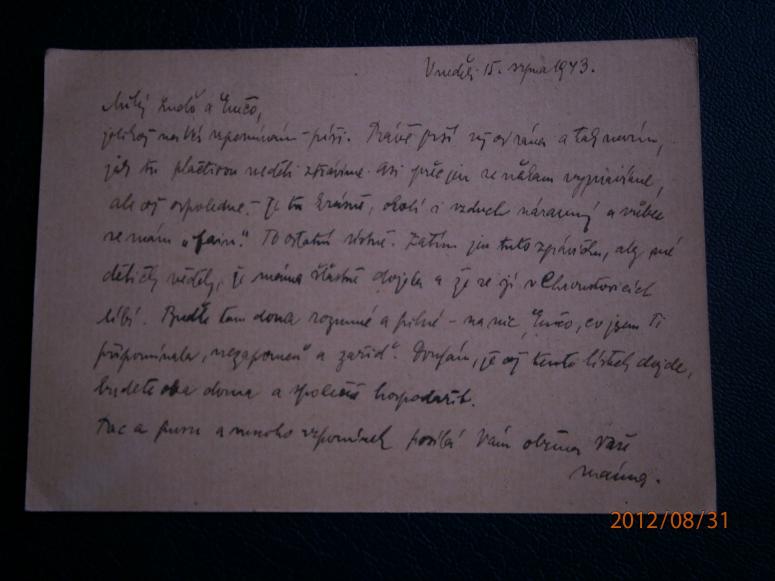 V neděli 15. srpna 1943.
Milý Luďo a Evčo,
jelikož na Vás vzpomínám - píši. Právě prší už od rána a tak nevím,
jak tu plačtivou neděli ztrávíme. Asi přec jen se někam vypravíme,
ale až odpoledne. - Je tu krásně, okolí i vzduch náramný a vůbec
se mám "fain". To ostatní ústně. Zatím jen tuto zprávičku, aby mé
dětičky věděly, že máma šťastně dojela a že se jí v Chroustovicích
líbí. Buďte tam doma rozumné a pilné - na nic, Evčo, co jsem Ti
připomínala, "nezapomeň a zařiď". Doufám, že až tento lístek dojde,
budete oba doma a společně hospodařit.
Pac a pusu a mnoho vzpomínek posílá Vám oběma Vaše
máma.
2012/08/31